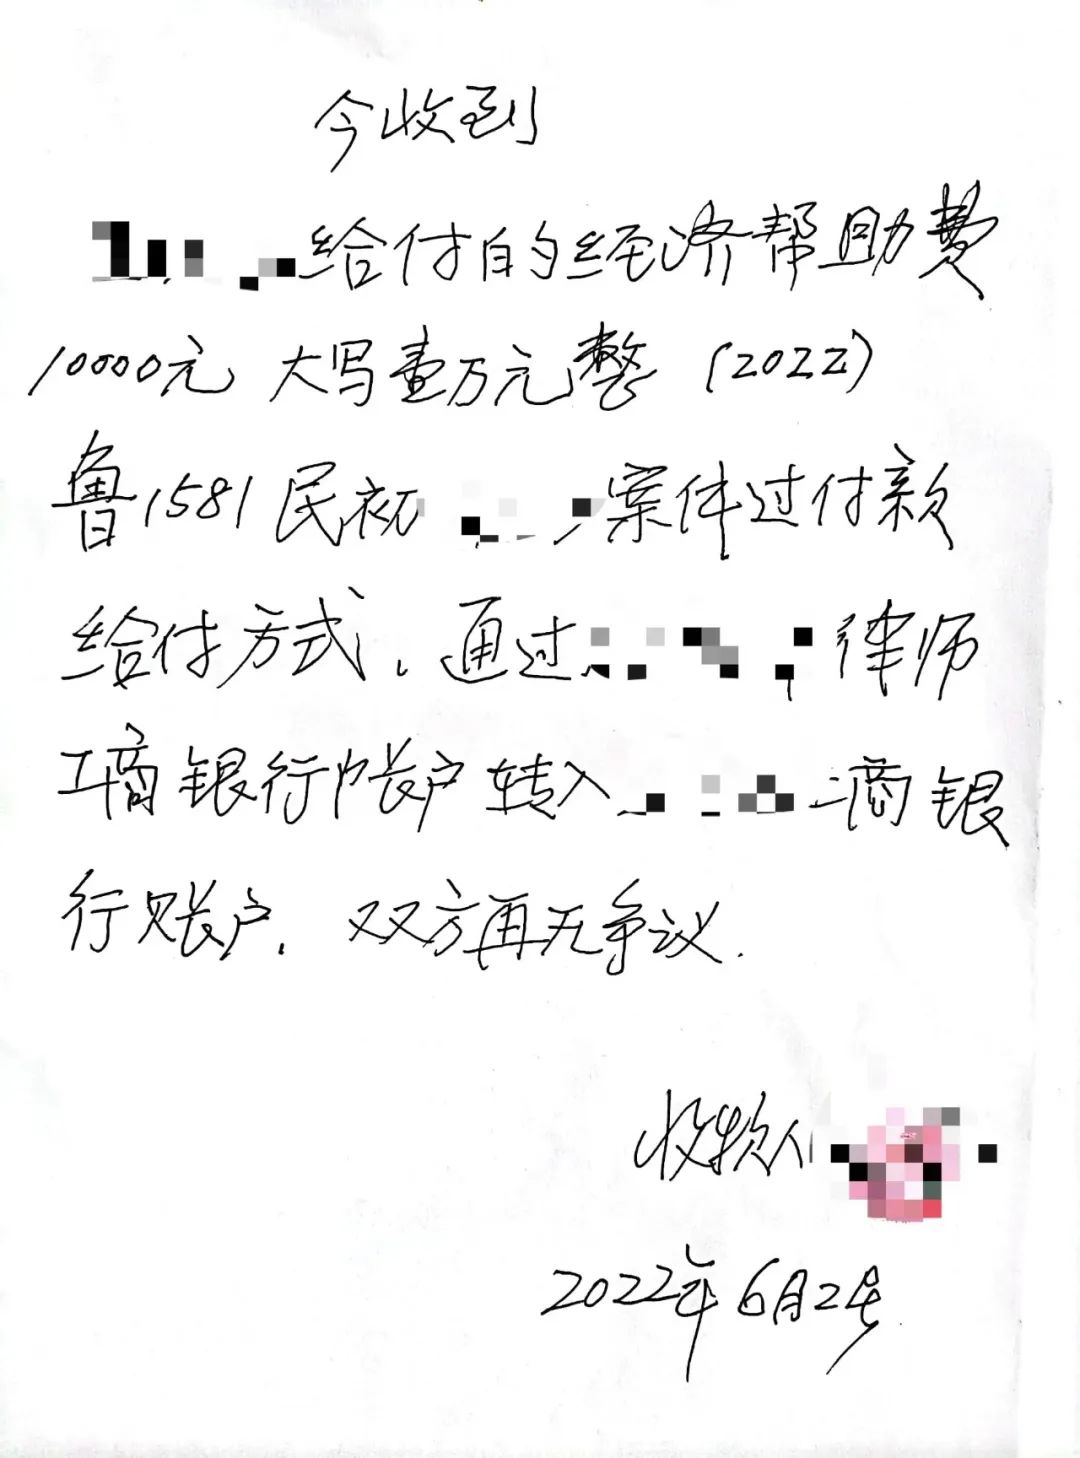 今收到
给付的经济帮助费
10000元 大写壹万元整 (2022)
鲁1581民初 案件过付款
给付方式、通过 律师
工商银行帐户转入 工商银
行账户. 双方再无争议.
收款人
2022年6月2号